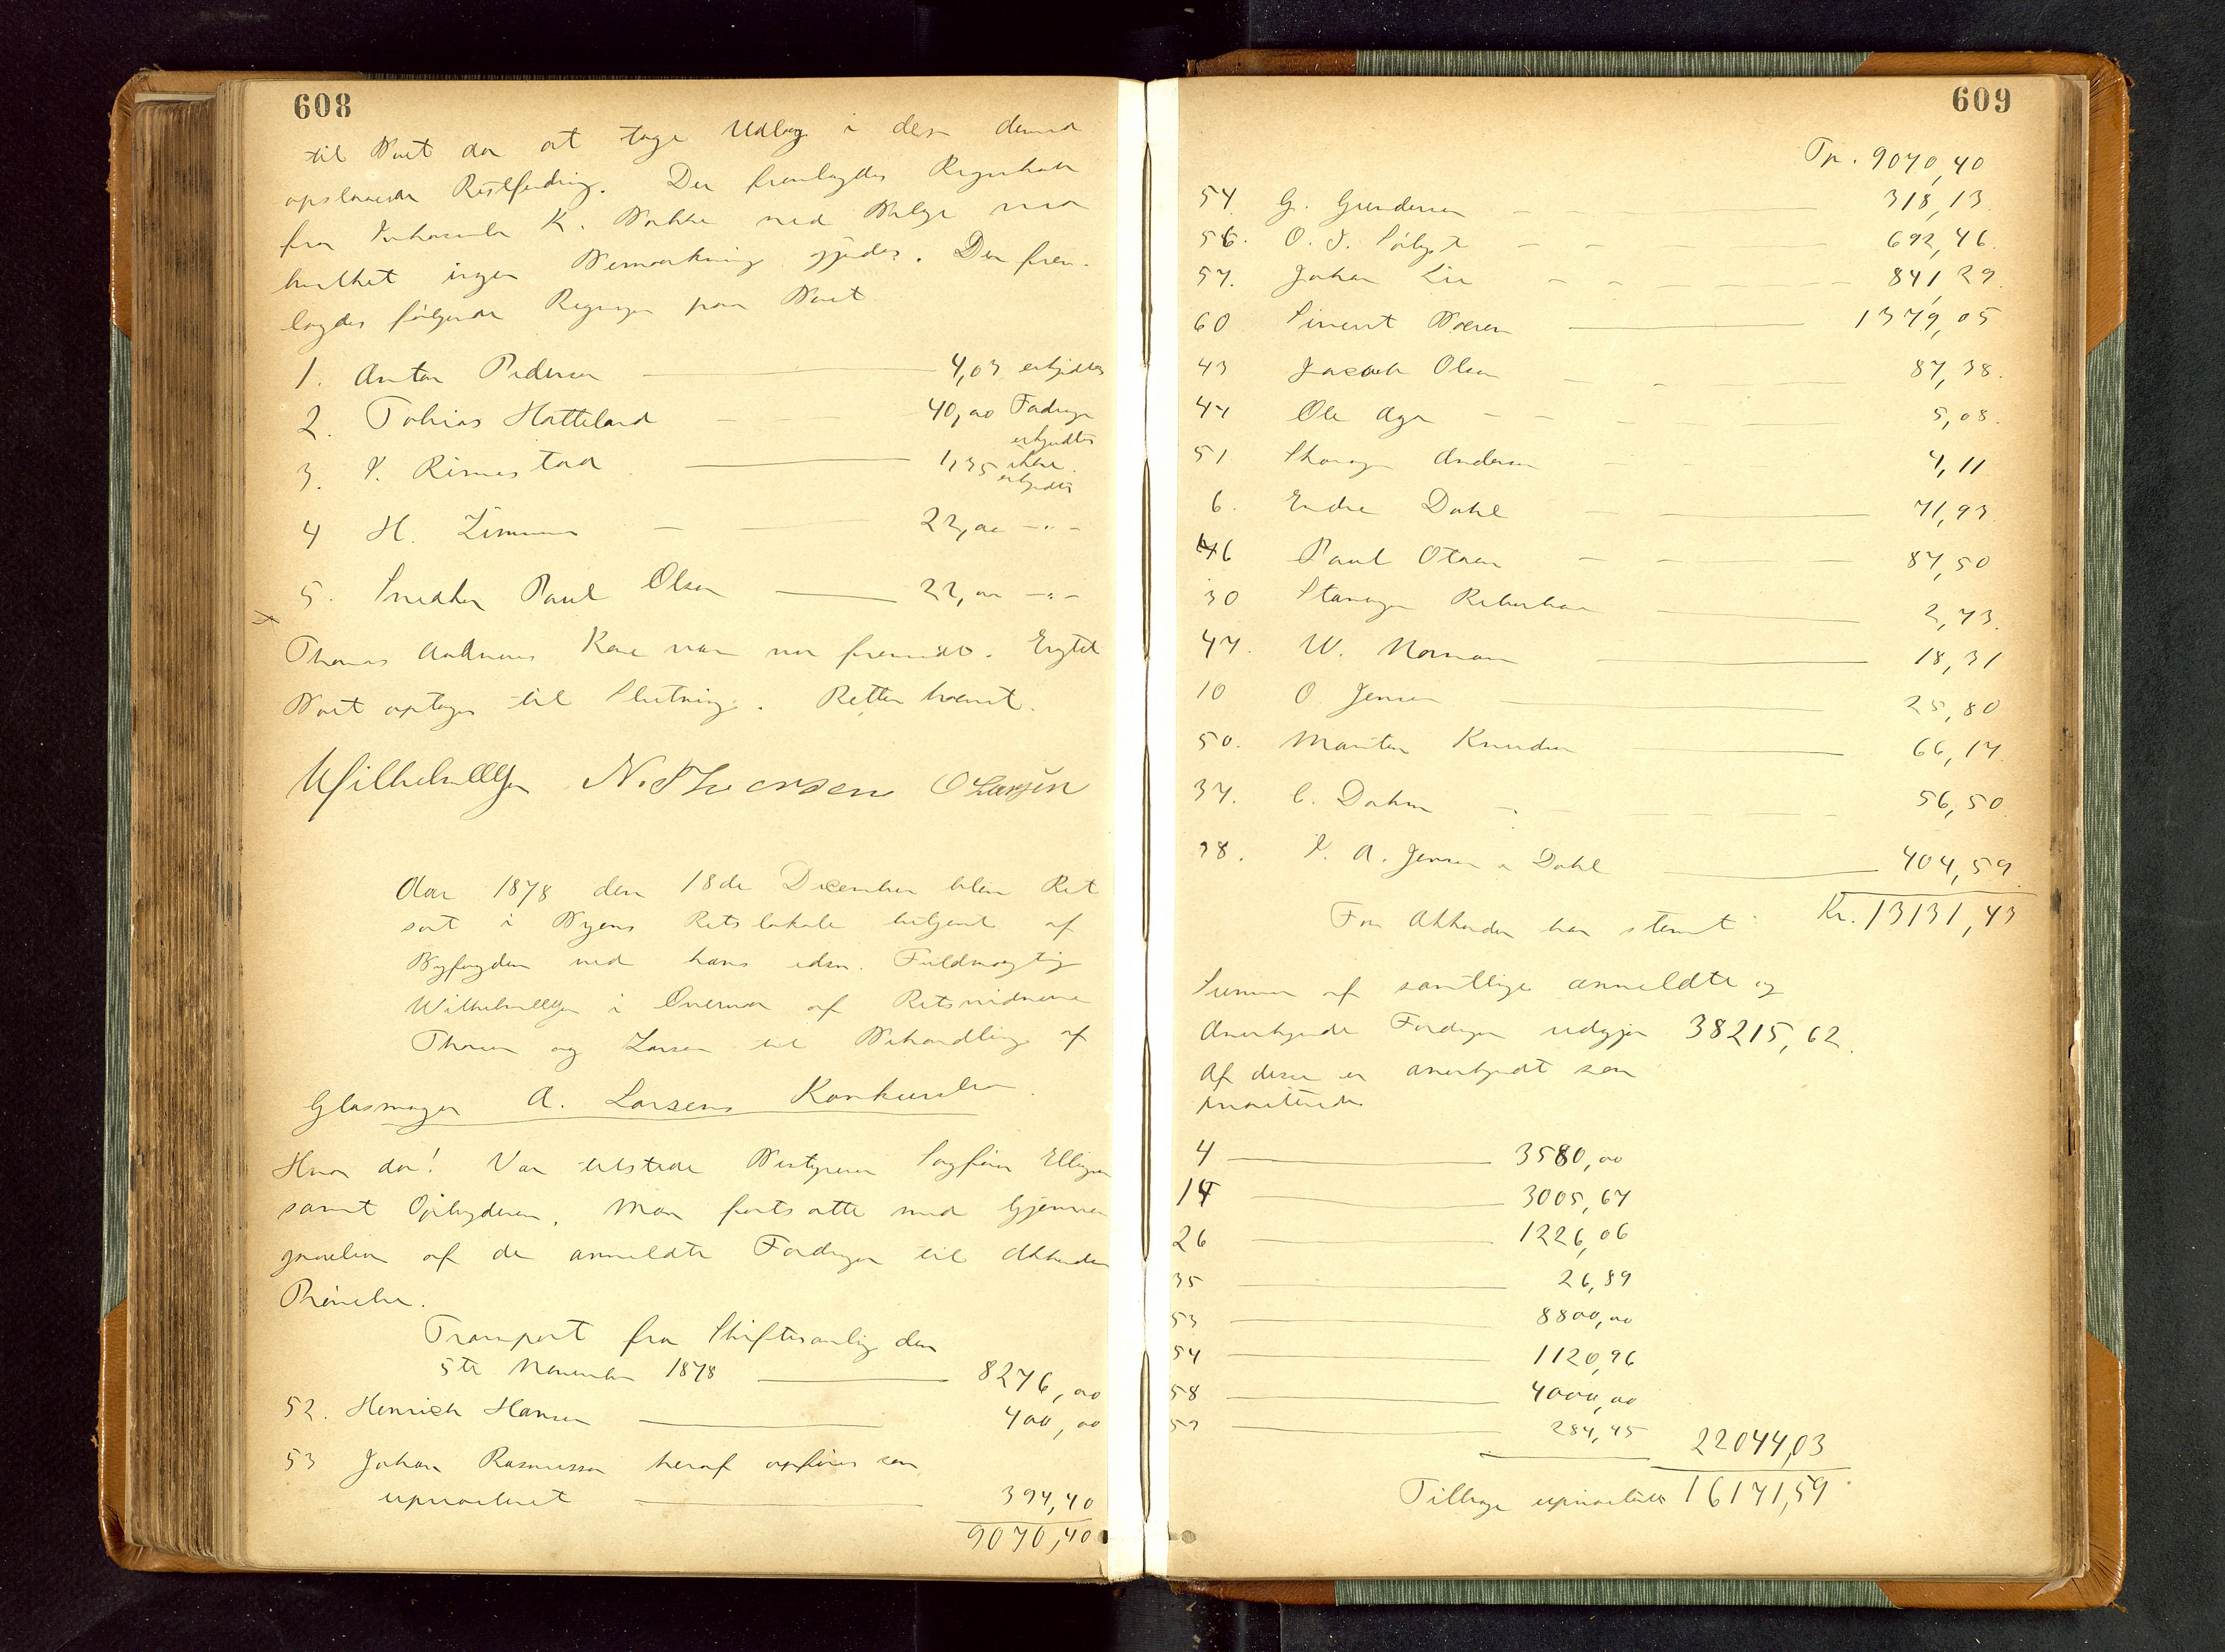 608
til Boet da at tage Udlæg i den derved
opstaaende Restfordring. Der fremlagdes Regnskab
fra Inkassator K. Bakke med Bilage mod
hvilket ingen Bemærkning gjordes. Der frem-
lagdes følgende Regninger paa Boet
1. Anton Pedersen 4,03 erkjendtes
2. Tobias Hatteland 40,00 Fordringen
erkjendtes
3. Rimestad 1,35 ikke
erkjendtes
4 H. Zimmer 22,00 -"-
5. Snedker Paul Olsen 22,00 -"-
Thomas Andreas Kase var nu fremmødt.
Boet optages til Slutning. Retten hævet.
Wilhelm Ellefsen N. Thorsen O Larsen
Aar 1878 den 18de December blev Ret
sat i Byens Retslokale betjent af
Byfogden ved hans edsv. Fuldmægtig
Wilhelm Ellefsen i Overvær af Retsvidnerne
Thorsen og Larsen til Behandling af
Glasmager A. Larsens Konkursbo
Hvor da! Var tilstede Bestyreren Sagfører Ellingsen
samt Opbyderen. Man fortsatte med Gjennem
gaaelsen af de anmeldte Fordringer til Akkorden
Prøvelse.
Transport fra Skiftesamling den
5te November 1878 8276,00
52. Henrich Hansen 400,00
53 Johan Rasmussen heraf opføres som
uprioriteret 394,40
9070,40
609
Tp. 9070,40
54. G. Gundersen 318,13.
56. O. 692,46.
57. Johan Lie 841,29
60 Sivert Boersen 1379,05
43 Jacob Olsen 87,38.
44 Ole Aga 5,08.
51 Andersen 4,11
6. Endre Dahl 71,93.
46 Paul Otnæs 87,50
30 Stavanger Reberbane 2,73.
47. W. Norman 18,31
10 O Jensen 25,80
50. Marthin Knudsen 66,17
37. C. Dahm 56,50
38. A. Jensen & Dahl 404,59
For Akkorden har stemt Kr. 13131,43
Summen af samtlige anmeldte og
Anerkjendte Fordringer udgjør 38215,62.
Af disse er anerkjendt som
prioriterede
4 3580,00
14 3005,67
26 1226,06
35 26,89
53 8800,00
54 1120,96
58 4000,00
59 284,45 22044,03
Tilbage uprioriteret 16171,59